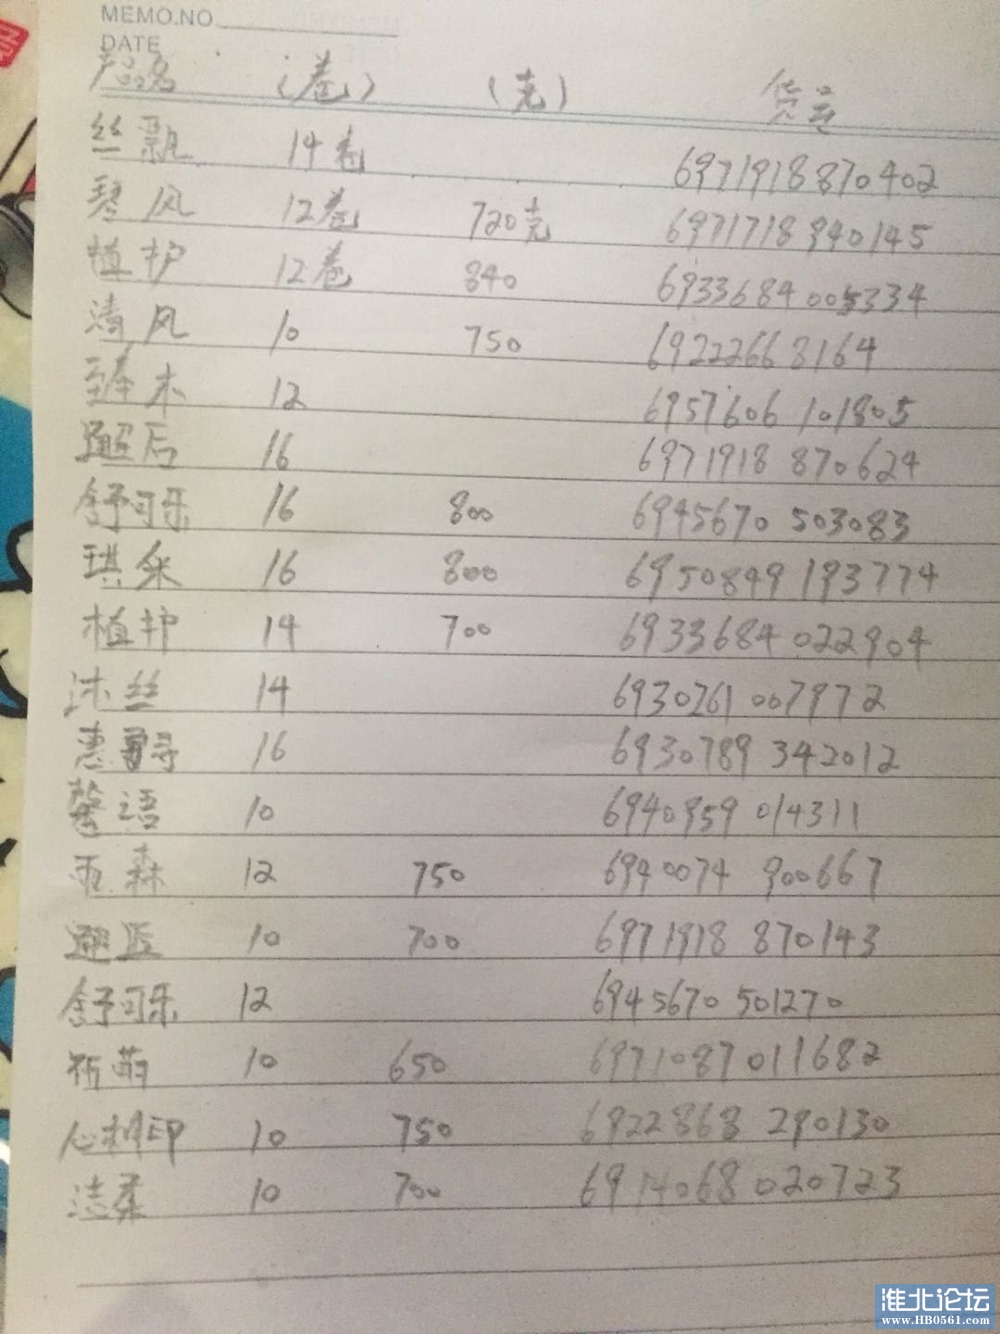 MEMO.NO
DATE
产品名 （卷） （克） 货号
丝飘 14卷 6971918870402
琴风 12卷 720克 6971718940145
植护 12卷 840 6933684005334
清风 10 750 69222668164
臻木 12 6957606 101805
邂后 16 6971918 870624
舒可乐 16 800 6945670 503083
琪采 16 800 6950849 193774
植护 14 700 6933684022904
沐丝 14 6930261 007972
惠 16 6930789 342012
馨语 10 6940959 014311
雨森 12 750 6940074 900667
10 700 6971918 870143
舒可乐 12 6945670 501270
萌 10 650 6971087011682
心相印 10 750 6922868 290130
洁柔 10 700 6914068020723
淮北论坛
www.HB0561.com